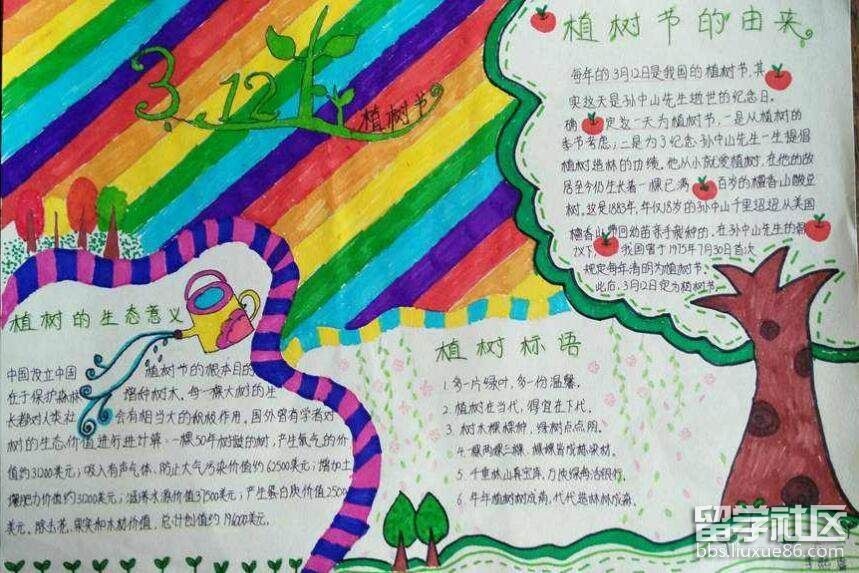 3.12
植树节
植树节的由来
每年的3月12日是我国的植树节,其
实这天是孙中山先生逝世的纪念日。
确定这一天为植树节,一是从植树的
季节考虑;二是为了纪念孙中山先生一生提倡
植树造林的功绩。他从小就爱植树,在他的故
居至今仍生长着一棵已满百岁的檀香山酸豆
树,这是1883年,年仅18岁的孙中山千里迢迢从美国
檀香山带回幼苗亲手栽种的,在孙中山先生的倡
议下,我国曾于1915年7月30日首次
规定每年清明为植树节。
此后,3月12日定为植树节
植树的生态意义
中国设立中国植树节的根本目的
在于保护森林 种树木,每一棵大树的生
长都对人类社会有相当大的积极作用。国外曾有学者对
树的生态价值进行进计算:一棵50年树龄的树,产生氧气的价
值约31200美元;吸入有声气体、防止大气污染价值约62500美元;增加土
壤肥力价值约31200美元;涵养水源价值37500美元;产生蛋白质价值2500
美元。除去花、果实和木材价值,总计创值约196000美元。
植树标语
1. 多一片绿叶,多一份温馨。
2. 植树在当代,得宜在下代。
3. 树木棵棵种,绿树点点明。
4. 一棵两棵三棵,棵棵皆成栋梁材。
5. 千重林山真宝库,万顷绿海活银行。
6. 年年植树树成荫,代代造林林成海。
留学社区
bbs.liuxue86.com